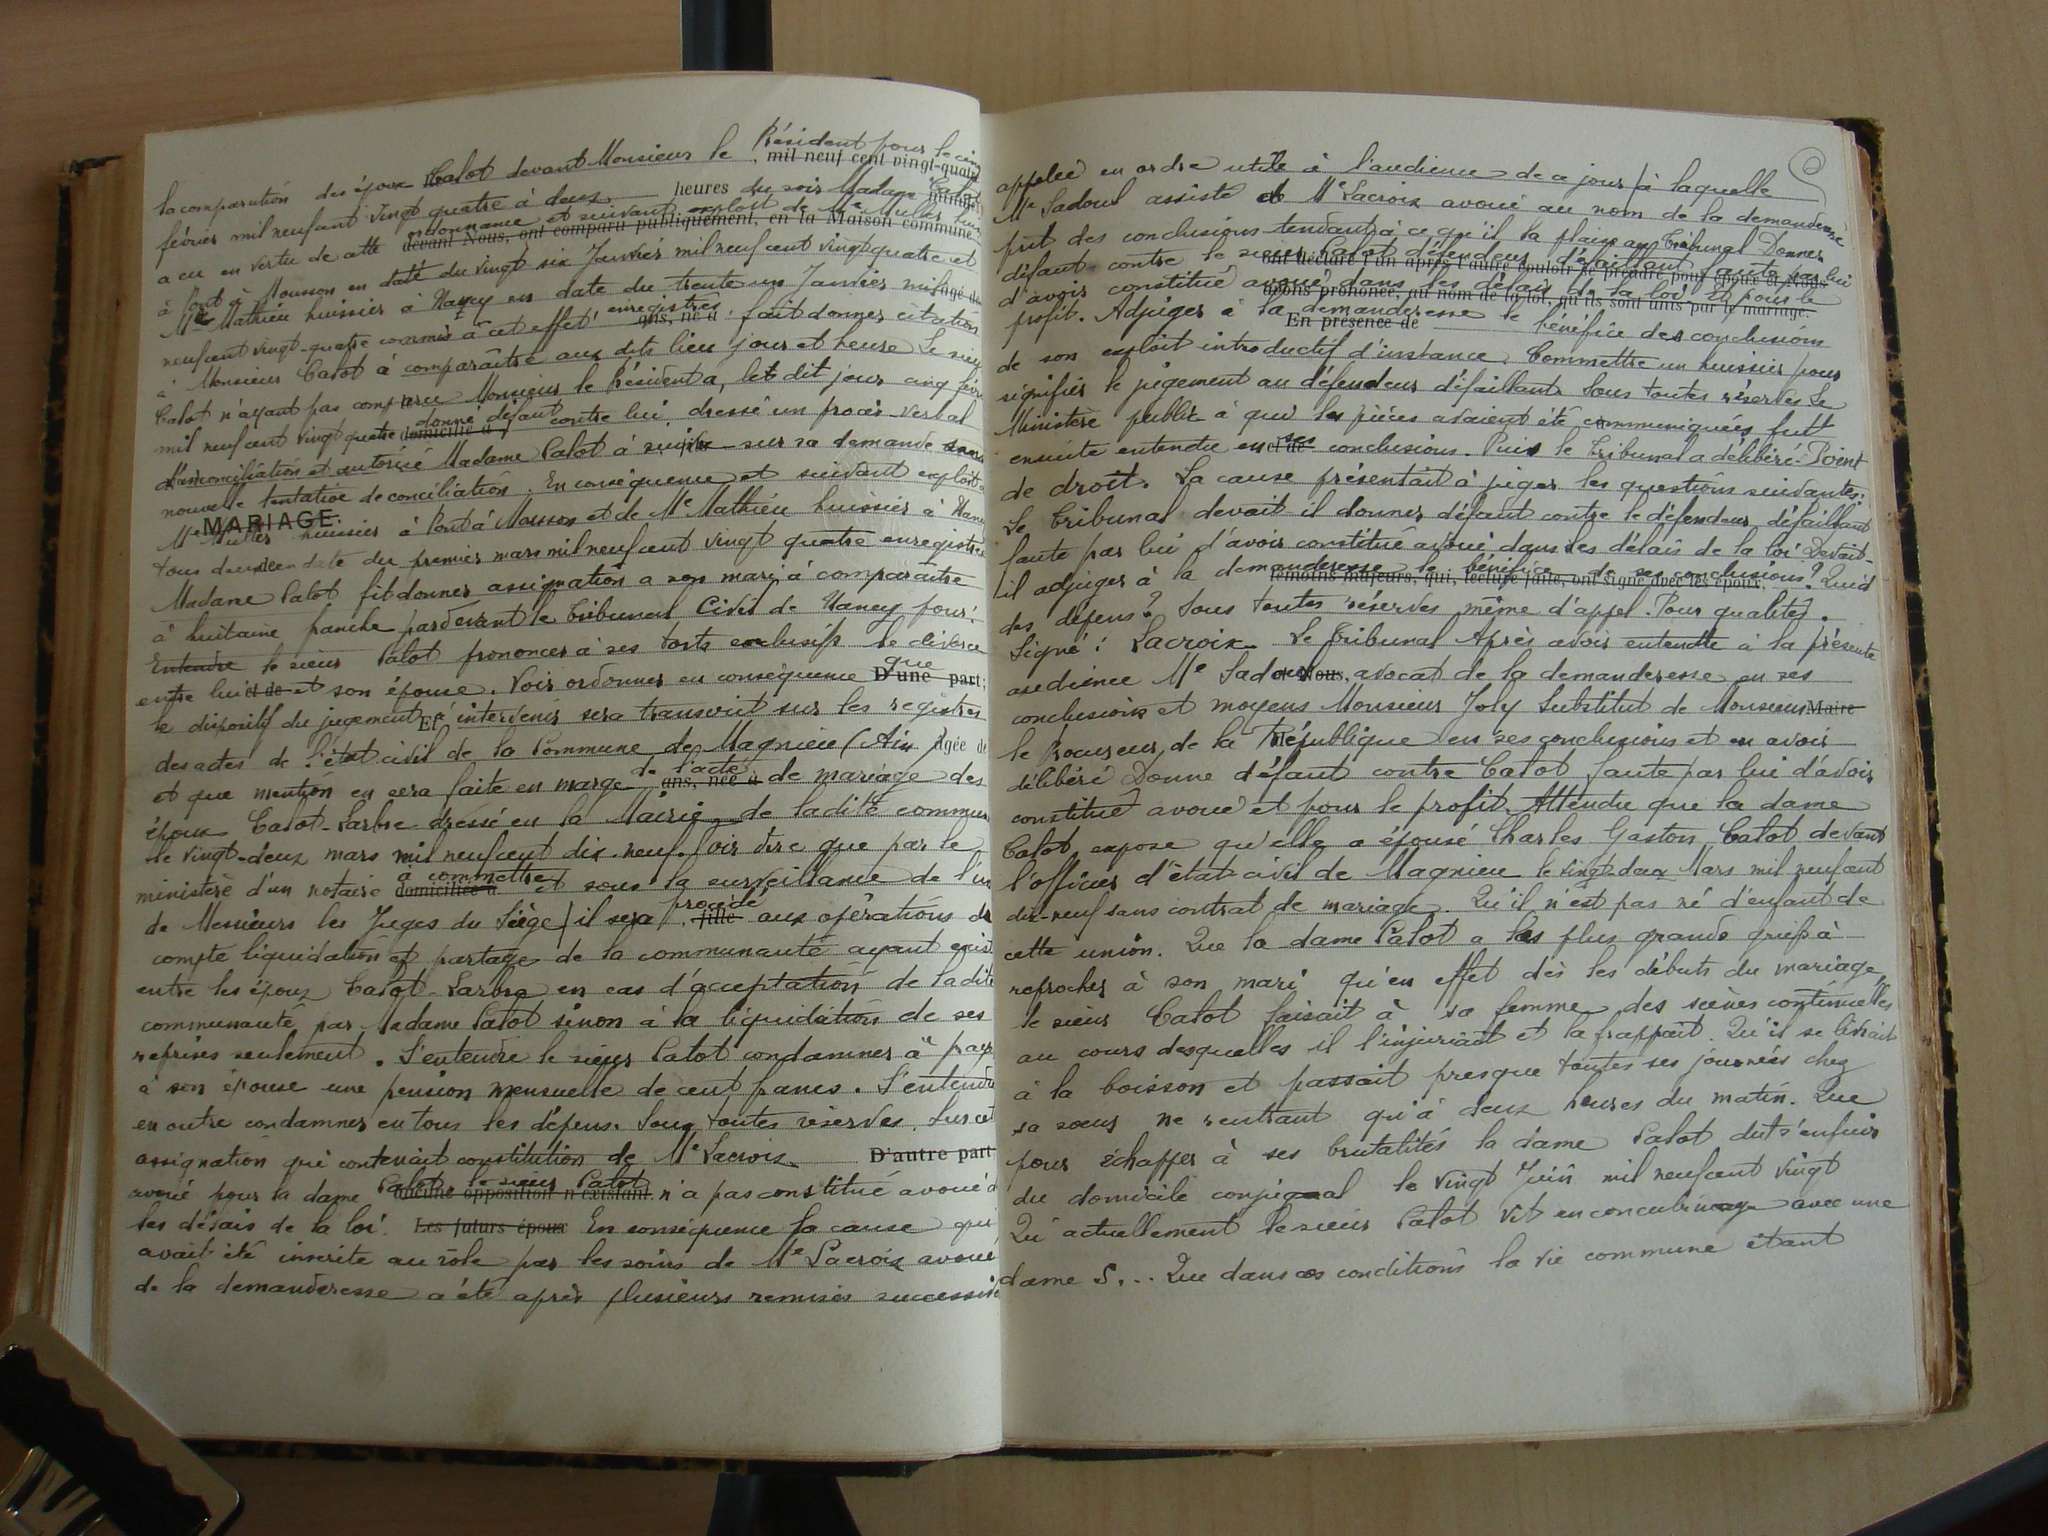 la comparution des époux Calot devant Monsieur le Président pour le cinq
, mil neuf cent vingt-quatre
février mil neuf cent vingt quatre à deux heures du soir Madame Calot
a eu en vertu de cette ordonnance et suivant exploit de Me Muller
devant Nous, ont comparu publiquement, en la Maison commune
à Pont à Mousson en date du vingt six Janvier mil neuf cent vingt quatre et
Me Mathieu huissier à Nancy en date du trente un Janvier mil
neuf cent vingt-quatre commis à cet effet enregistrés ans, né à fait donner citation
à Monsieur Calot à comparaître aux dits lieu jour et heure Le sieur
Calot n'ayant pas comparu Monsieur le Président a, le dit jour cinq
mil neuf cent vingt quatre domicilié à donné défaut contre lui, dressé un procès-verbal
de non conciliation et autorisé Madame Calot à suivre sur sa demande sans
nouvelle tentative de conciliation. En conséquence et suivant exploit
MARIAGE.
Me Muller huissier à Pont à Mousson et de Me Mathieu huissier à
tous deux en date du premier mars mil neuf cent vingt quatre enregistrés
Madame Calot fit donner assignation a son mari à comparaître
à huitaine franche par devant le Tribunal Civil de Nancy pour:
Entendre le sieur Calot prononcer à ses torts exclusifs le divorce
entre lui et de et son épouse. Voir ordonner en conséquence que D'une part;
le dispositif du jugement Et à intervenir sera transcrit sur les registres
des actes de l'état civil de la Commune de Magnieu (Ain) âgée de
et que mention en sera faite en marge de l'acte ans, née à de mariage des
époux Calot-Sarbre dressé en la Mairie de ladite commune
le vingt-deux mars mil neuf cent dix-neuf. Voir dire que par le
ministère d'un notaire à commettre domiciliée à et sous la surveillance de l'un
de Messieurs les Juges du Siège, il sera procédé fille aux opérations de
compte liquidation et partage de la communauté ayant
entre les époux Calot-Sarbre en cas d'acceptation de ladite
communauté par Madame Calot sinon à la liquidation de ses
reprises seulement. S'entendre le sieur Calot condamner à payer
à son épouse une pension mensuelle de cent francs. S'entendre
en outre condamner en tous les dépens. Sous toutes réserves. Sur cette
assignation qui contenait constitution de Me Lacroix D'autre part
avoué pour la dame Calot, le sieur Calot aucune opposition n'existant. n'a pas constitué avoué
les délais de la loi. Les futurs époux En conséquence la cause qui
avait été inscrite au rôle par les soins de Me Lacroix avoué
de la demanderesse a été après plusieurs remises successives
appelée en ordre utile à l'audience de ce jour, à laquelle
Me Sadoul assisté de Me Lacroix avoué au nom de la demanderesse
prit des conclusions tendant à ce qu'il la plaise au Tribunal Donner
défaut contre le sieur Calot défendeur défaillant faute par lui
ont déclaré l'un après l'autre vouloir se prendre pour époux et Nous
d'avoir constitué avoué dans les délais de la loi Et pour le
avons prononcé, au nom de la loi, qu'ils sont unis par le mariage.
profit. Adjuger à la demanderesse le bénéfice des conclusions
En présence de
de son exploit introductif d'instance. Commettre un huissier pour
signifier le jugement au défendeur défaillant. Sous toutes réserves Le
Ministère public à qui les pièces avaient été communiquées fut
ensuite entendu en ses et de conclusions. Puis le tribunal a délibéré - Point
de droit. La cause présentait à juger les questions suivantes:
Le Tribunal devait-il donner défaut contre le défendeur défaillant
faute par lui d'avoir constitué avoué dans les délais de la loi Devait-
il adjuger à la demanderesse le bénéfice de ses conclusions? Quid
témoins majeurs, qui, lecture faite, ont signé avec les époux
des dépens? Sous toutes réserves même d'appel. Pour qualités.
Signé: Lacroix. Le Tribunal Après avoir entendu à la présente
audience Me Sadoul et Nous, avocat de la demanderesse en ses
conclusions et moyens Monsieur Joly Substitut de Monsieur Maire
le Procureur de la République en ses conclusions et en avoir
délibéré Donne défaut contre Calot faute par lui d'avoir
constitué avoué et pour le profit, Attendu que la dame
Calot expose qu'elle a épousé Charles Gaston Calot devant
l'officier d'état-civil de Magnieu le vingt-deux Mars mil neuf cent
dix-neuf sans contrat de mariage. Qu'il n'est pas né d'enfant de
cette union. Que la dame Calot a les plus grands griefs à
reprocher à son mari qu'en effet dès les débuts du mariage,
le sieur Calot faisait à sa femme des scènes continuelles
au cours desquelles il l'injuriait et la frappait. Qu'il se livrait
à la boisson et passait presque toutes ses journées chez
sa sœur ne rentrant qu'à deux heures du matin. Que
pour échapper à ses brutalités la dame Calot dut s'enfuir
du domicile conjugal le vingt Juin mil neuf cent vingt
Qu'actuellement le sieur Calot vit en concubinage avec une
dame S... Que dans ces conditions la vie commune étant